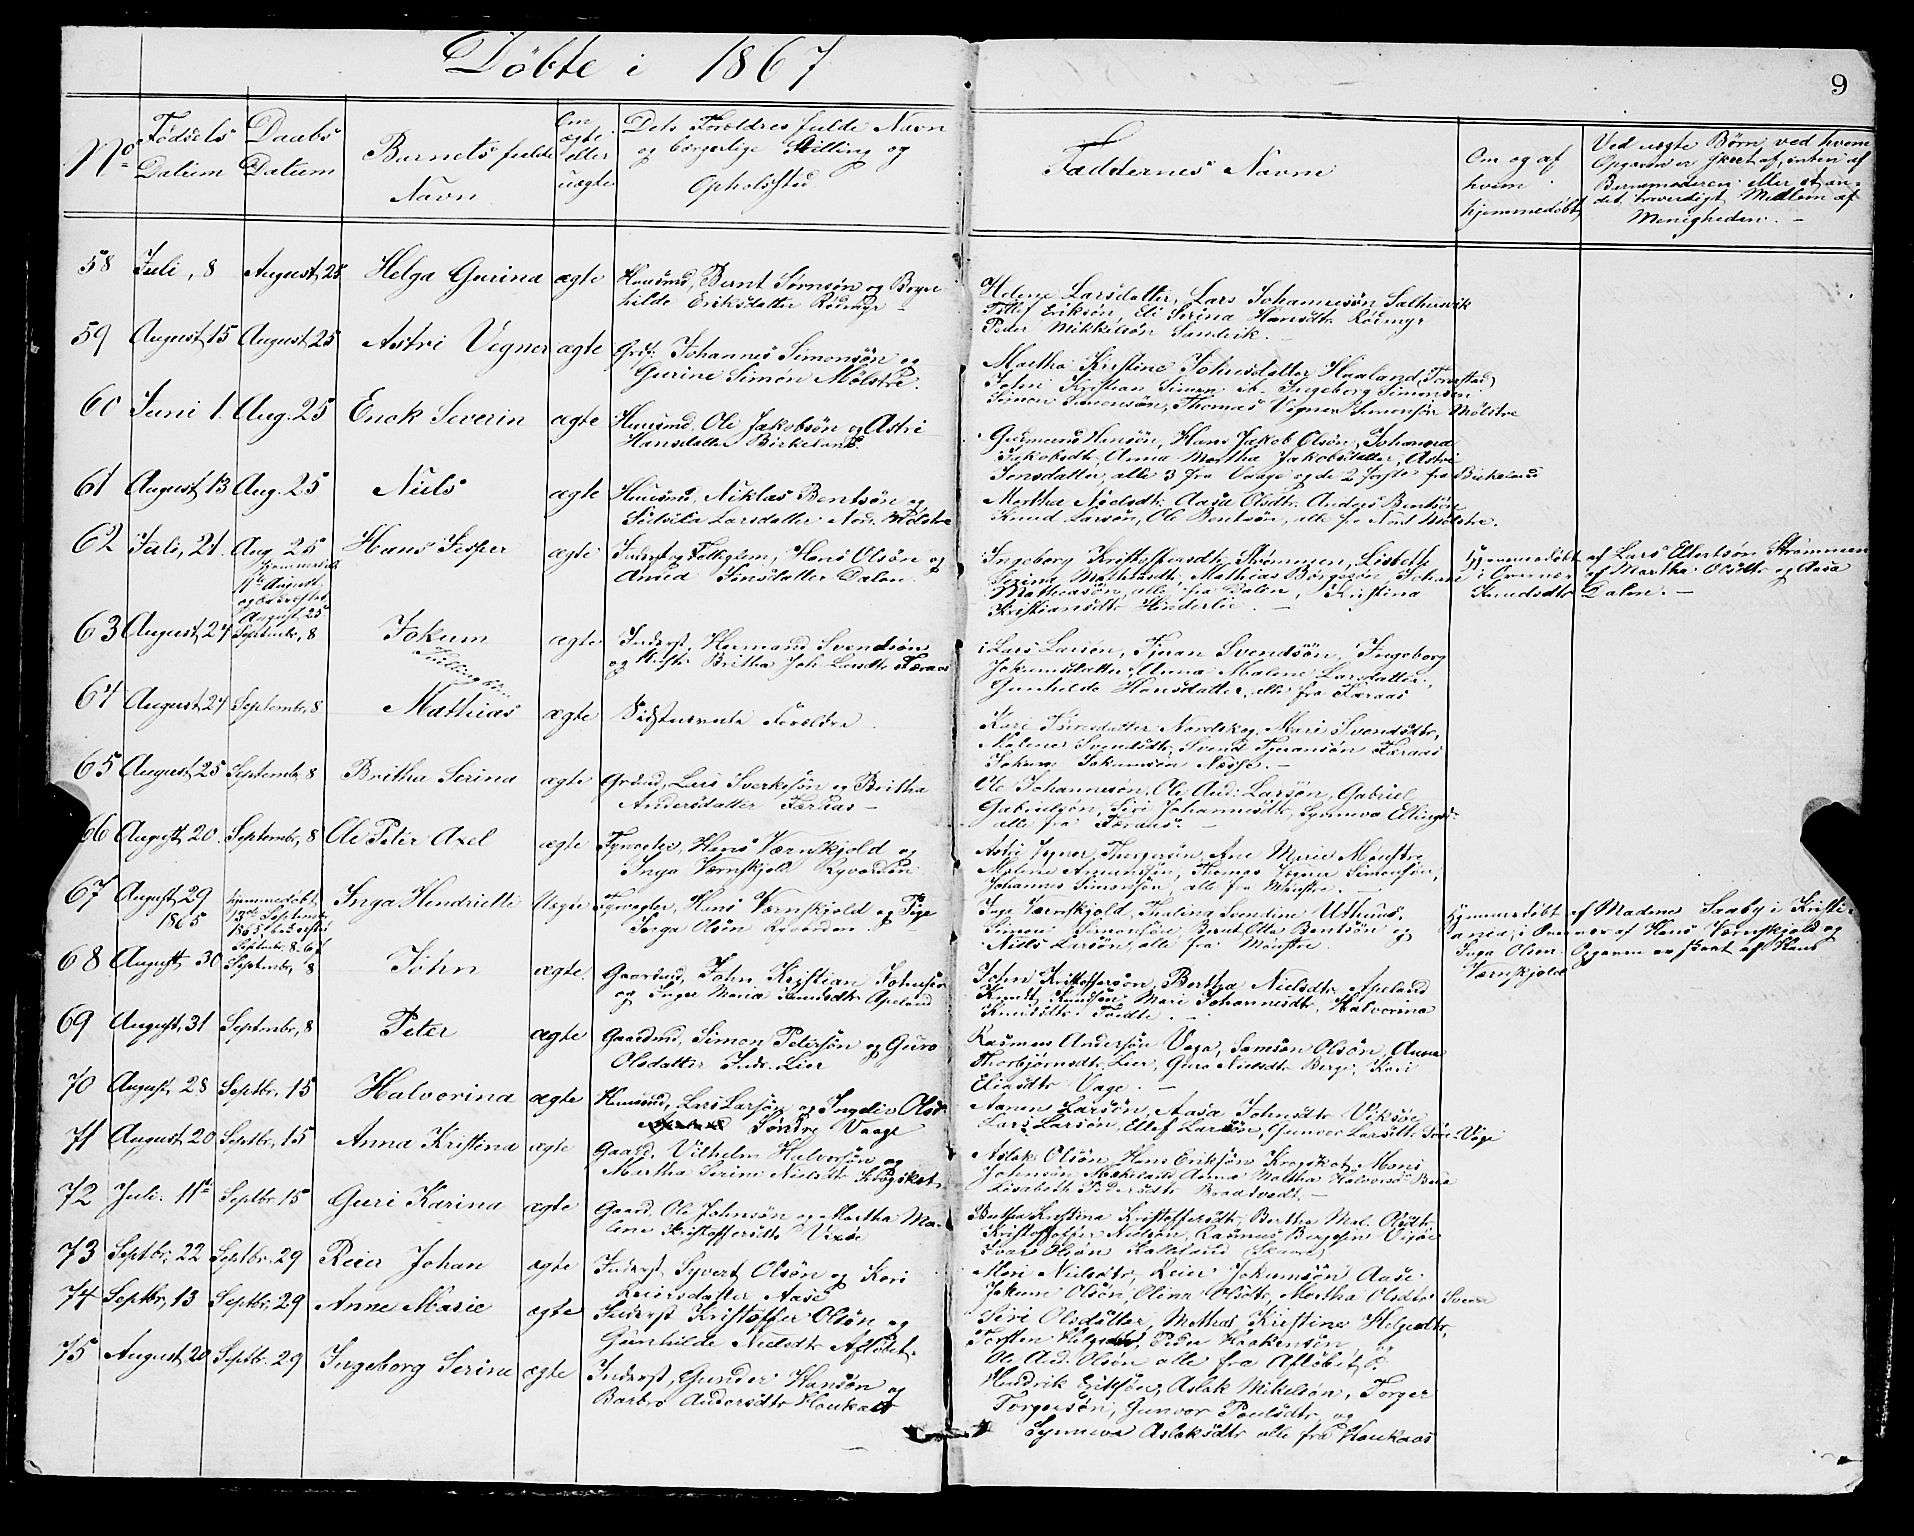 Döbte i 1867
9
No
Födsels Datum
Daabs Datum
Barnets fulde Navn
Om ægte eller uægte
Dets Forældres fulde Navn og borgerlige Stilling og Opholdsted
Faddernes Navne
Om og af hvem hjemmedöbt
Ved uægte Börn, ved hvem Opgaven er skeet af, enten af Barnemoderen eller et andet troverdigt Medlem af Menigheden.
58 Juli, 8 August, 25 Helga Gurina ægte Huusmd, Bernt Sörnsön og
hilde Eriksdatter Rödmyr
Helene Larsdatter, Lars Johannesön
Tellef Eriksön, Eli Serina Hansdtr Rödmyr
Peder Mikkelsön Sandvik.
59 August, 15 August, 25 Astri Vegner ægte Grdb: Johannes Simonsön og
Gurine Simon Mölstre.
Martha Kirstine Johnsdatter Haaland,
John Kristian Simon Ingeborg Simonsen
Simon Simonsön, Thomas Vegner Simonsön Mölstre
60 Juni 1. Aug. 25 Enok Severin ægte Huusmd. Ole Jakobsön og Astri
Hansdatter Birkeland.
Gudmund Hansön, Hans Jakob Olsön, Johanna
Jakobsdt. Anna Martha Jakobsdatter, Astri
Jonsdatter, alle 3 fra Vaage og de 2 sidste fra Birkeland
61 August 13 Aug. 25 Niels ægte Huusmd, Niklas Bentsön og
Larsdatter Nor. Mölstre
Martha Nielsdtr. Aasa Olsdtr. Anders Bentsön
Knud Larsön, Ole Bentsön, alle fra Nord Mölstre.
62 Juli, 21. Aug. 25 Hans Jesper ægte Inderst og Hans Olsön og
Datter Dalen.
August
August 25
Ingeborg Kristoffersdtr. Strömmen, Lisbeth
Serina Mathiasdt, Mathias Börgesön, Johan
Mathiasön, alle fra Dalen, Kristina
Kristiansdtr Hinderlie
Hjemmedöbt af Lars Ellertsön Strömmen
i Overvær af Martha Olsdtr og Aasa
Knudsdtr Dalen.
63 August, 24 Septembr, 8 Jokum ægte Inderst, Hermand Svendsön
og Hustr Britha Joh. Larsdtr Færaas
Tvillingbörn
Lars Larsön, Tjeran Svendsön, Ingeborg
Jokumsdatter, Anna Malene Larsdatter,
Gunhilde Hansdatter, alle fra Færaas
64 August, 24 Septembr, 8 Mathias ægte Sidstnævnte Forældre.
Kari Nordskog, Mari Svendsdtr,
Malene Svendsdtr, Svend Tjeransön Færaas
Johan Jokumsön Næsse.
65 August, 25 Septembr, 8 Britha Serina ægte Grdmd, Lars Sverkesön og Britha
Andersdatter Færaas
Ole Johannesön, Ole And: Larsön, Gabriel
Gabrielsön, Siri Johannesdtr, Synneva Ellings
alle fra Færaas.
66 August, 20. Septembr, 8 Ole Peter Axel ægte Fyrvogter, Hans Værnskjold og
Inga Værnskjold Ryvarden
Astri Vegner, Thorgersön, Ane Marie Mölstre
Malene Amundsön, Thomas Vegner Simonsön,
Johannes Simonsön, alle fra Mölstre.
67 August, 29 1865 Hjemmedöbt
13de Septembr 1865
Septembr 8. 67
Inga Hendriette Uægte Fyrvogter, Hans Værnskjold og Pige
Inga Olsön Ryvarden
Inga Værnskjold, Thaline Svendine
Simon Simonsön Bernt Otto Bentsön og
Niels Larsön, alle fra Mölstre.
Hjemmedöbt af Madame Saaby i Kristi-
ania, i Overvær af Hans Værnskjold og
Inga Olsen. Opgaven er skeet af Hans
Værnskjold
68 August 30 Septembr, 8 John ægte. Gaardmd, John Kristian Johnsön
og Inger Maria Knudsdtr Apeland
John Kristoffersön, Bertha Nielsdtr, Apeland
Knudt Knudsön, Mari Johannesdtr, Halvorina
Knudsdtr Tvedte.
69 August, 31 Septembr, 8 Peter ægte Gaardmd, Simon Petersön og Guro
Olsdatter Indr. Lier
Rasmus Andersön Vaga, Samson Olsön, Anna
Thorbjörnsdtr, Lier, Guro Nielsdtr Berge, Kari
Eliasdtr Vage.
70 August, 28 Septbr. 15 Halvorina ægte Huusmd, Lars Larsön og Ingeliv Olsdt
Söndre Vaage
Aanen Larsön, Aasa Johnsdtr Viksöe
Lars Larsön, Ellef Larsön, Gunvor Larsdtr Sön. Vage
71 August, 20 Septbr. 15 Anna Kristina ægte Gaard. Vilhelm Halvorsön og
Martha Serine Nielsdtr Krogskot
Aslak Olsön, Hans Eriksön Krogskot, Mons
Johnsön Anna Maltha Halvors.
Lisabeth Pedersdtr Braatvedt.
72 Juli. 11te Septbr. 15 Guri Karina ægte Gaard. Ole Johnsön og Martha Ma-
lene Kristoffersdtr Vixöe
Bertha Kristina Kristoffersdtr, Bertha Mal. Olsdtr,
Kristoffer Nielsön, Rasmus Vixöe
Ivar Olsön
73 Septbr. 22 Septbr. 29 Reier Johan ægte Inderst Syvert Olsön og Kari
Aase
Mari Nielsdtr, Reier Jokumsön Aase
Jokum Olsön, Olina Olsdtr, Martha Olsdtr
74 Septbr, 13 Septbr. 29 Anne Marie ægte Inderst Kristoffer Olsön og
Gunhilde Nielsdtr Aflöbet.
Siri Olsdatter, Methas Kristine Helgesdtr,
Torsten Peder Haakensön, og
Ole And. Olsön alle fra Aflöbet.
75 August 20 Septbr. 29 Ingeborg Serine ægte Inderst, Gunder Hansön og
Barbro Andersdtr Haukaas
Hendrik Eriksön, Aslak Mikelsön, Torger
Torgersön, Gunvor Poulsdtr, og
Synneva Aslaksdtr alle fra Haukaas